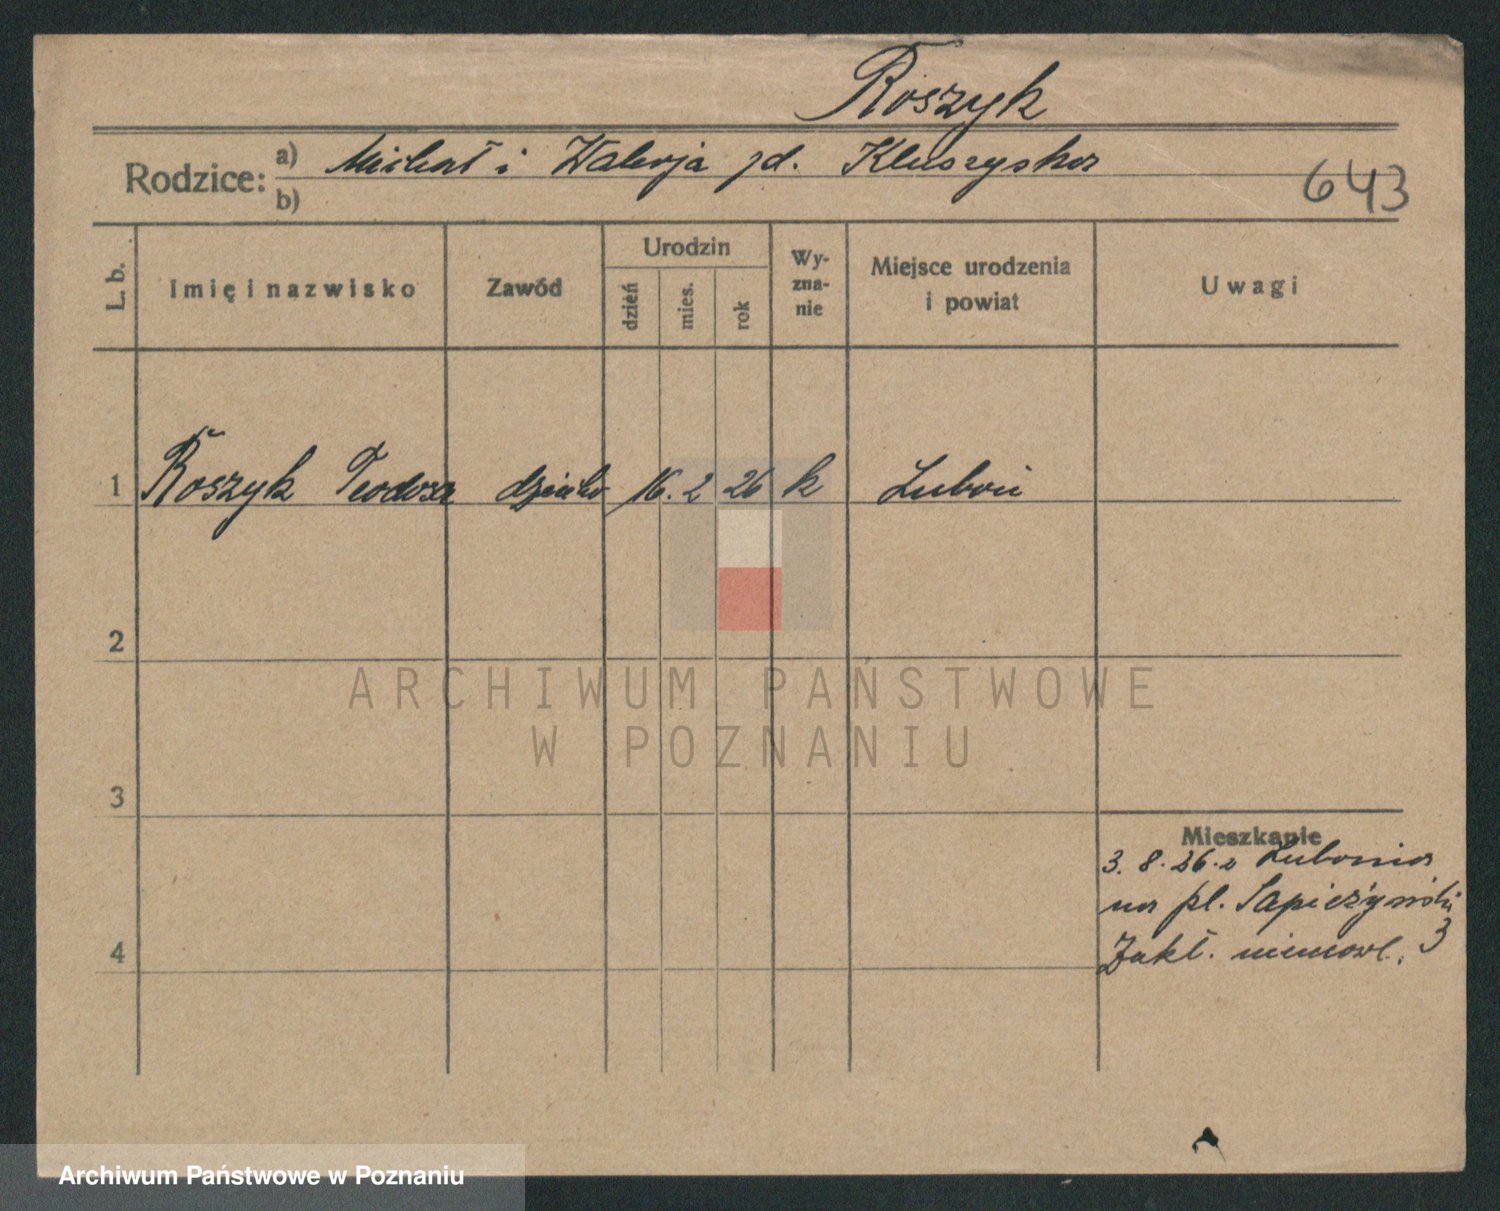 Roszyk
Rodzice: a) Michał i Walerja zd. Kluszyska
b)
643
L. b.
Imię i nazwisko
Zawód
Urodzin
dzień
mies.
rok
Wy-
zna-
nie
Miejsce urodzenia
i powiat
Uwagi
1 Roszyk Teodozja dziecko 16. 2 26 k Luboń
2
3
4
Mieszkanie
3. 8. 26. z Lubonia
na pl. Sapieżyński
3
Zakł. niemowl.
ARCHIWUM PAŃSTWOWE
W POZNANIU
Archiwum Państwowe w Poznaniu